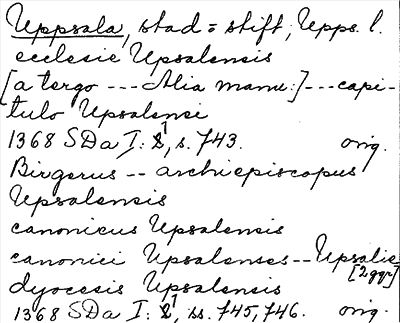 Uppsala, stad = stift, Upps. l.
ecclesie Upsalensis
[a tergo --- Alia manu:] --- capi-
tulo Upsalensi
1368 SDa I: 1, s. 743. orig.
Birgerus -- archiepiscopus
Upsalensis
canonicus Upsalensis
canonici Upsalenses -- Upsalie
[2ggr]
dyocesis Upsalensis
1368 SDa I: 1, ss. 745, 746. orig.